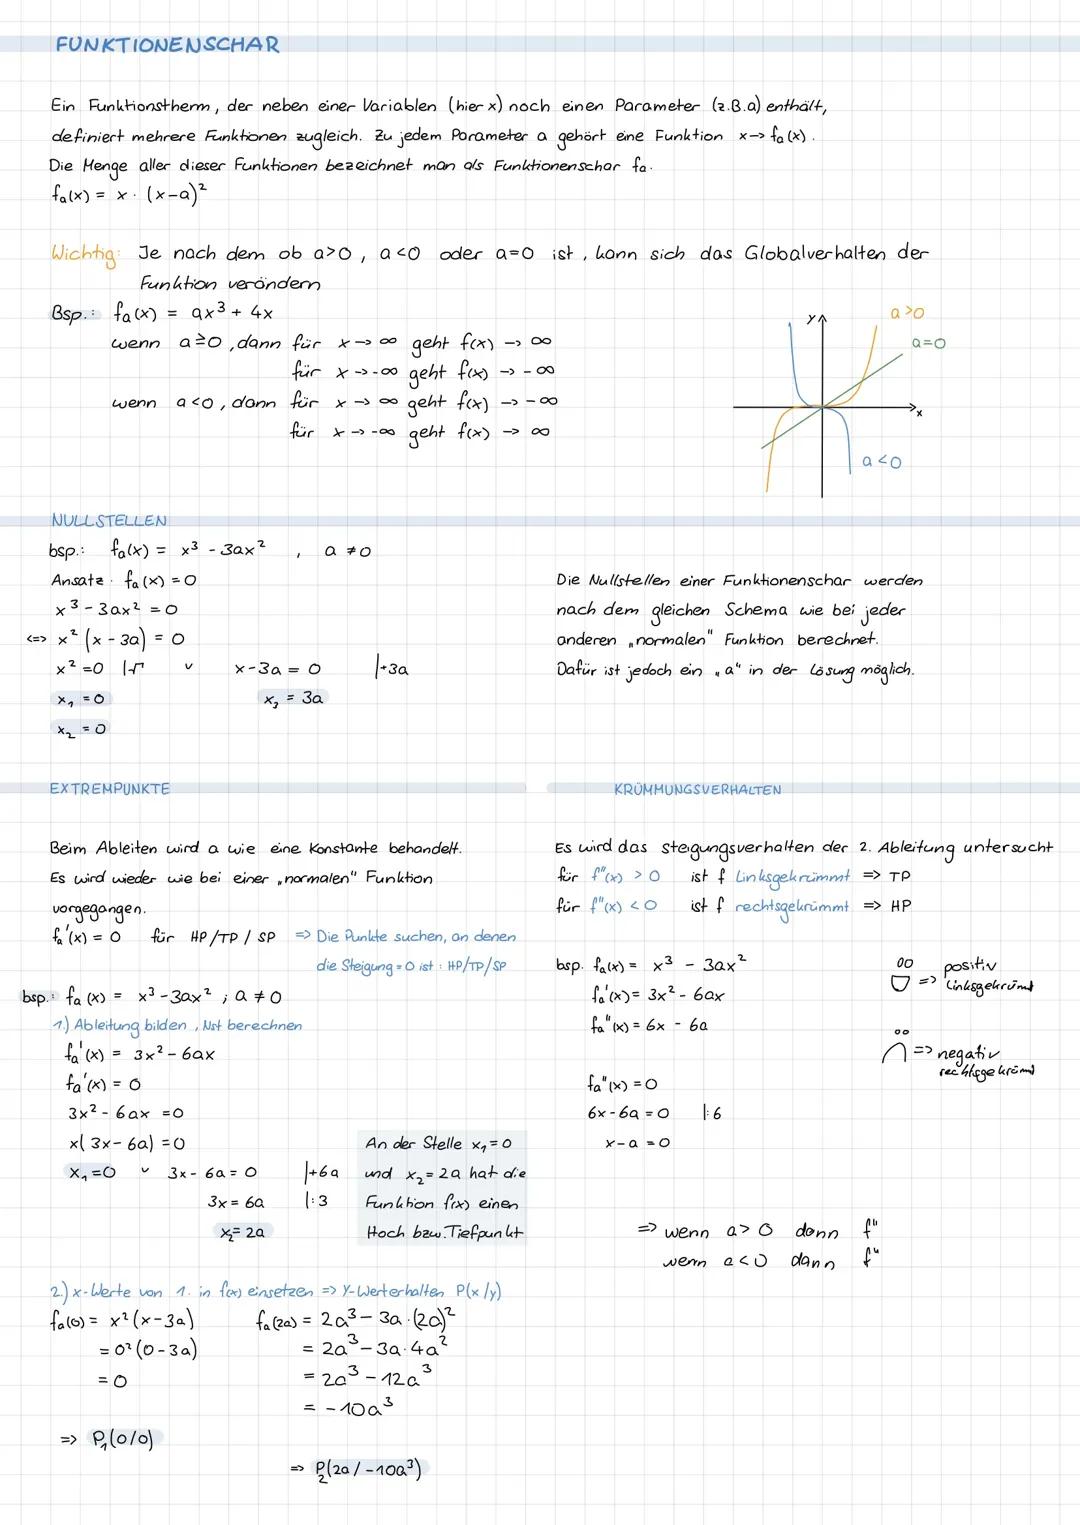 FUNKTIONENSCHAR
Ein Funktionstherm, der neben einer Variablen (hier x) noch einen Parameter (z.B. a) enthält,
definiert mehrere Funktionen zugleich. Zu jedem Parameter a gehört eine Funktion x-> fa(x).
Die Menge aller dieser Funktionen bezeichnet man als Funktionenschar fa.
fa(x) = x · (x-a)²
Wichtig: Je nach dem ob a>0, a<0 oder a=0 ist, kann sich das Globalverhalten der
Funktion verändern
Bsp.: fa(x) = ax³ + 4x
wenn a≥0, dann für x → ∞ geht f(x) → ∞
für x → -∞ geht f(x) → -∞
wenn a<0, dann für x → ∞ geht f(x) → -∞
für x → -∞ geht f(x) → ∞
y
a>0
a=0
x
a<0
NULLSTELLEN
bsp.: fa(x) = x³ - 3ax² , a ≠0
Ansatz: fa(x) = 0
x³ - 3ax² = 0
<=> x² (x - 3a) = 0
x² =0 |√ v x-3a = 0 |+3a
x₁ = 0 x₃ = 3a
x₂ = 0
Die Nullstellen einer Funktionenschar werden
nach dem gleichen Schema wie bei jeder
anderen „normalen" Funktion berechnet.
Dafür ist jedoch ein „a" in der Lösung möglich.
EXTREMPUNKTE
Beim Ableiten wird a wie eine Konstante behandelt.
Es wird wieder wie bei einer „normalen" Funktion
vorgegangen.
fa'(x) = 0 für HP/TP/SP => Die Punkte suchen, an denen
die Steigung = 0 ist : HP/TP/SP
bsp.: fa(x) = x³ - 3ax² ; a ≠ 0
1.) Ableitung bilden, Nst berechnen
fa'(x) = 3x² - 6ax
fa'(x) = 0
3x² - 6ax = 0
x( 3x - 6a) = 0
x₁ = 0 v 3x - 6a = 0 |+6a
3x = 6a |:3
x₂= 2a
An der Stelle x₁ = 0
und x₂ = 2a hat die
Funktion f(x) einen
Hoch bzw. Tiefpunkt
2.) x-Werte von 1. in f(x) einsetzen => Y-Wert erhalten P(x/y)
fa(0) = x² (x-3a) fa(2a) = 2a³ - 3a·(2a)²
= 0² (0-3a) = 2a³ - 3a·4a²
= 0 = 2a³ - 12a³
= -10a³
=> P₁(0/0)
=> P₂(2a/-10a³)
KRÜMMUNGSVERHALTEN
Es wird das steigungsverhalten der 2. Ableitung untersucht
für f"(x) > 0 ist f linksgekrümmt => TP
für f"(x) < 0 ist f rechtsgekrümmt => HP
bsp. fa(x) = x³ - 3ax²
fa'(x) = 3x² - 6ax
fa"(x) = 6x - 6a
=> positiv
linksgekrümmt
=> negativ
rechtsgekrümmt
fa"(x) = 0
6x - 6a = 0 |:6
x - a = 0
=> wenn a> 0 dann f"
wenn a<0 dann f"